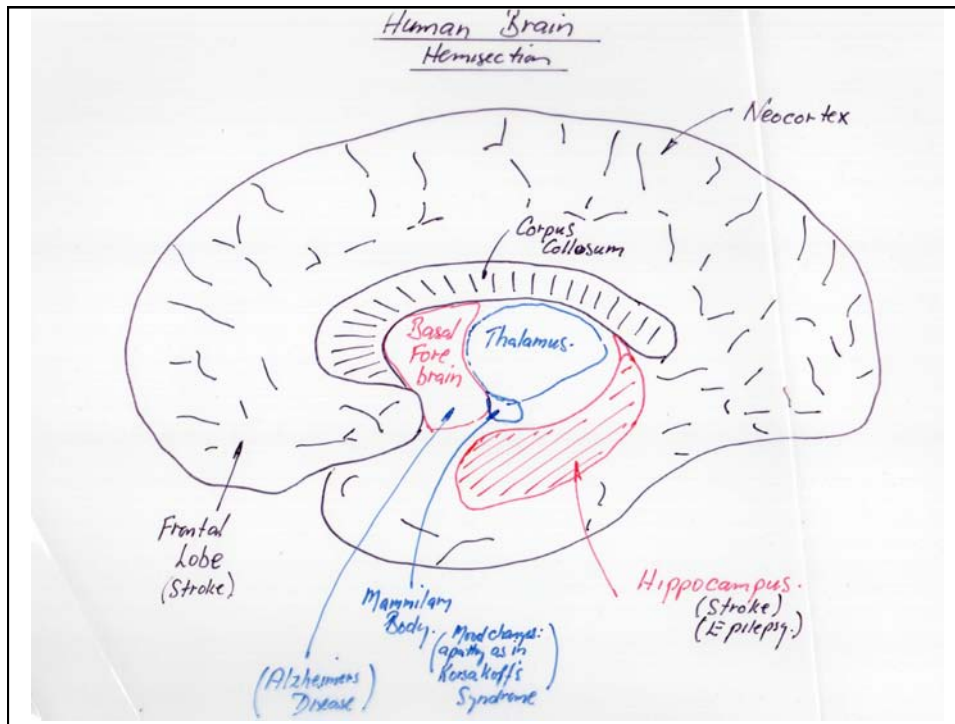 Human Brain
Hemisection
Neocortex
Corpus
Collosum
Basal
Fore
brain
Thalamus.
Frontal
Lobe
(Stroke)
Hippocampus.
(Stroke)
(Epilepsy.)
Mammilary
Body.
(Mood changes:
apathy as in
Korsakoff's
Syndrome)
(Alzheimers
Disease)